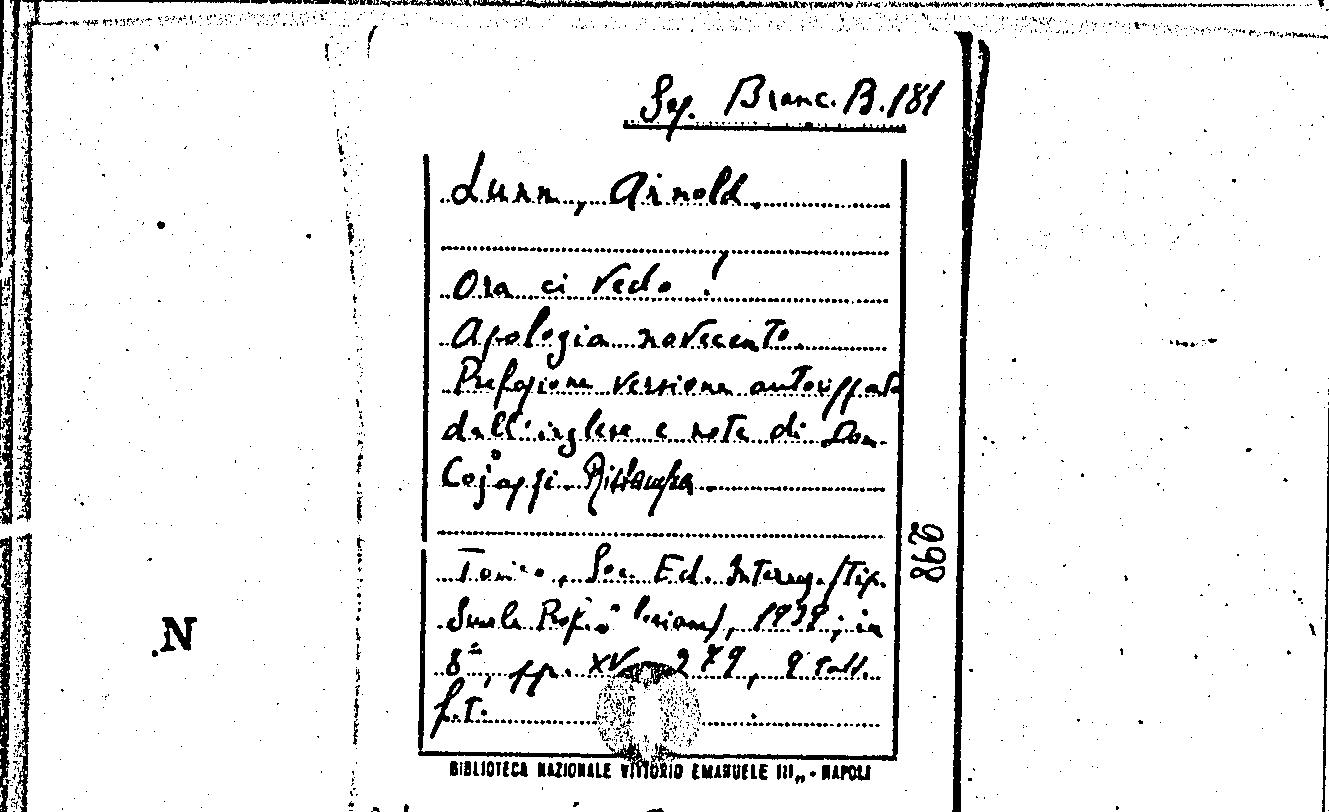 Sep. Branc. B. 181
Lunn, Arnold.
Ora ci vedo!
Apologia novecento.
Prefazione versione autorizzata
dall'inglese e note di Don
Cojazzi. Ristampa.
Torino, Soc. Ed. Internaz. (Tip.
Scuola Prof.
in
8°, pp. XV, 279, 2 tall.
f.t.
298
.N
BIBLIOTECA NAZIONALE VITTORIO EMANUELE III„ - NAPOLI